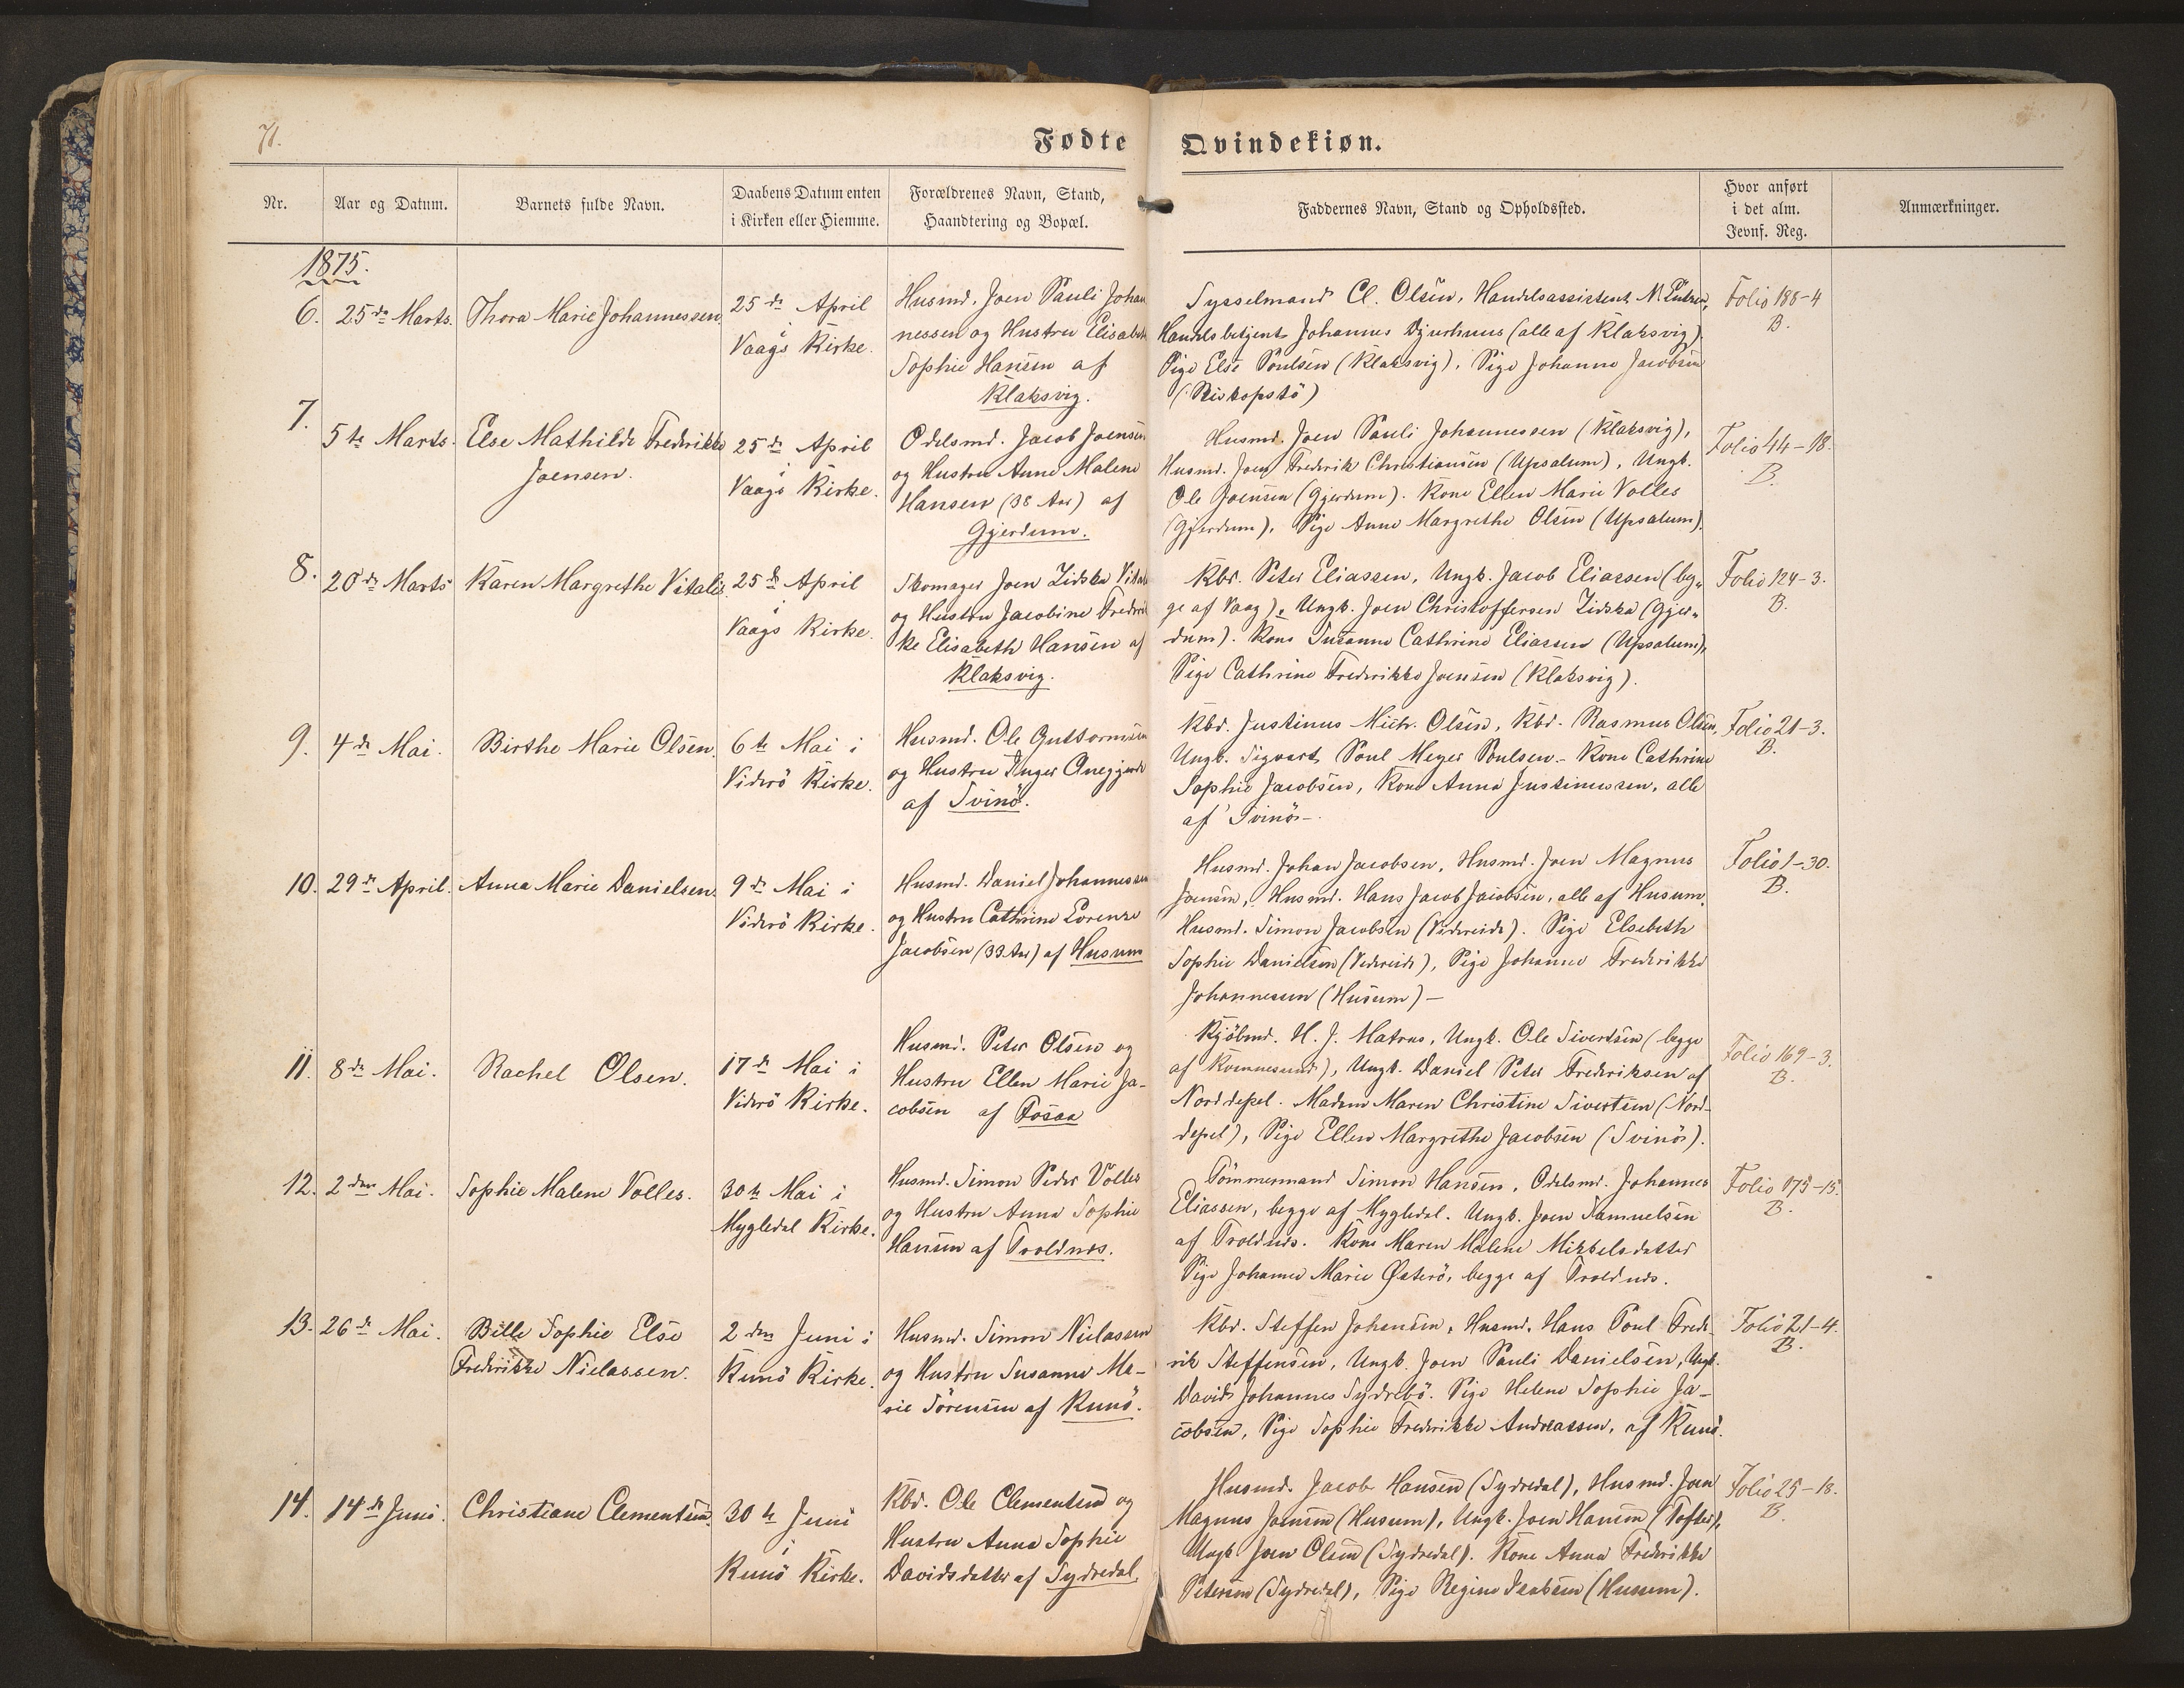 71.
Fødte Qvindekiøn.
Nr.
Aar og Datum.
Barnets fulde Navn.
Daabens Datum enten
i Kirken eller Hiemme.
Forældrenes Navn, Stand,
Haandtering og Bopæl.
Faddernes Navn, Stand og Opholdssted.
Hvor anført
i det alm.
Jevnf. Reg.
Anmærkninger.
1875.
6.
25de Marts.
Thora Marie Johannessen
25de April
i
Vaags Kirke.
Husmd. Joen Pauli Johan
nessen og Hustru Elisabeth
Sophie Hansen af
Klaksvig.
Sysselmand Cl. Olsen, Handelsassistent M.
Handelsbetjent Johannes Djurhuus (alle af Klaksvig).
Pige Else Poulsen (Klaksvig). Pige Johanne Jacobsen
(Biskopstö)
Folio 188-4
B.
7.
5te Marts.
Else Mathilde Frederikke
Joensen.
25de April
i
Vaags Kirke.
Odelsmd. Jacob Joensen
og Hustru Anne Malene
Hansen (38 Aar) af
Gjerdum.
Husmd. Joen Pauli Johannessen (Klaksvig),
Husmd. Joen Frederik Christiansen (Upsalum), Ungk.
Ole Joensen (Gjerdum). Kone Ellen Marie Volles
(Gjerdum). Pige Anne Margrethe Olsen (Upsalum).
Folio 44-18.
B.
8.
20de Marts
Karen Margrethe Vitalis.
25de April
i
Vaags Kirke.
Skomager Joen Zidska Vital
og Hustru Jacobine Frederik
ke Elisabeth Hansen af
Klaksvig.
Kbd. Peter Eliassen, Ungk. Jacob Eliassen (beg-
ge af Vaag), Ungk. Joen Christoffersen Zidska (Gjer-
dum). Kone Susanne Cathrine Eliassen (Upsalum),
Pige Cathrine Frederikke Joensen (Klaksvig).
Folio 124-3.
B.
9.
4de Mai.
Birthe Marie Olsen.
6te Mai i
Viderö Kirke.
Husmd. Ole Guttormsen
og Hustru Inger
af Svinö.
Kbd. Justinus Mich. Olsen, Kbd. Rasmus Olsen,
Ungk. Sigvart Poul Meyer Poulsen. - Kone Cathrine
Sophie Jacobsen, Kone Anna Justinussen, alle
af Svinö -.
Folio 21-3.
B.
10.
29de April.
Anna Marie Danielsen.
9de Mai i
Viderö Kirke.
Husmd. Daniel Johannessen
og Hustru Cathrine Lorenze
Jacobsen (33 Aar) af Husum
Husmd. Johan Jacobsen, Husmd. Joen Magnus
Joensen, Husmd. Hans Jacob Jacobsen, alle af Husum.
Husmd. Simon Jacobsen (Videreide). Pige Elsebeth
Sophie Danielsen (Videreide), Pige Johanne Frederikke
Johannesen (Husum) -
Folio 1-30.
B.
11.
8de Mai.
Rachel Olsen.
17de Mai i
Viderö Kirke.
Husmd. Peter Olsen og
Hustru Ellen Marie Ja-
cobsen af Fosaa
Kjöbmd. H. J. Matras, Ungk. Ole Sivertsen (begge
af Kvannesund), Ungk. Daniel Peter Frederiksen af
Norddepel. Madam Maren Christine Sivertsen (Nord-
depel), Pige Ellen Margrethe Jacobsen (Svinö).
Folio 169-3.
B.
12.
2den Mai.
Sophie Malene Volles.
30te Mai i
Mygledal Kirke.
Husmd. Simon Peder Volles
og Hustru Anna Sophie
Hansen af Troldnæs.
Tömmermand Simon Hansen, Odelsmd. Johannes
Eliassen, begge af Mygledal. Ungk. Joen Samuelsen
af Troldnæs. Kone Maren Malene Mikkelsdatter
Pige Johanne Marie Østerö, begge af Troldnæs.
Folio 175-15.
B.
13.
26de Mai.
Bille Sophie Else
Frederikke Nielassen.
2den Juni i
Kunö Kirke.
Husmd. Simon Nielassen
og Hustru Susanne Ma-
rie Sörensen af Kunö.
Kbd. Steffen Johansen, Husmd. Hans Poul Frede-
rik Steffensen, Ungk. Joen Pauli Danielsen, Ungk.
David Johannes Sydrebö. Pige Helene Sophie Ja-
cobsen, Pige Sophie Frederikke Andreassen, af Kunö.
Folio 21-4.
B.
14.
14de Juni.
Christiane Clementsen.
30te Juni
i
Kunö Kirke.
Kbd. Ole Clementsen og
Hustru Anna Sophie
Davidsdatter af Sydredal.
Husmd. Jacob Hansen (Sydredal), Husmd. Joen
Magnus Joensen (Husum), Ungk. Joen Hansen (Tofter),
Ungk. Joen Olsen (Sydredal). Kone Anna Frederikke
Petersen (Sydredal), Pige Regine Jacobsen (Husum).
Folio 25-18.
B.